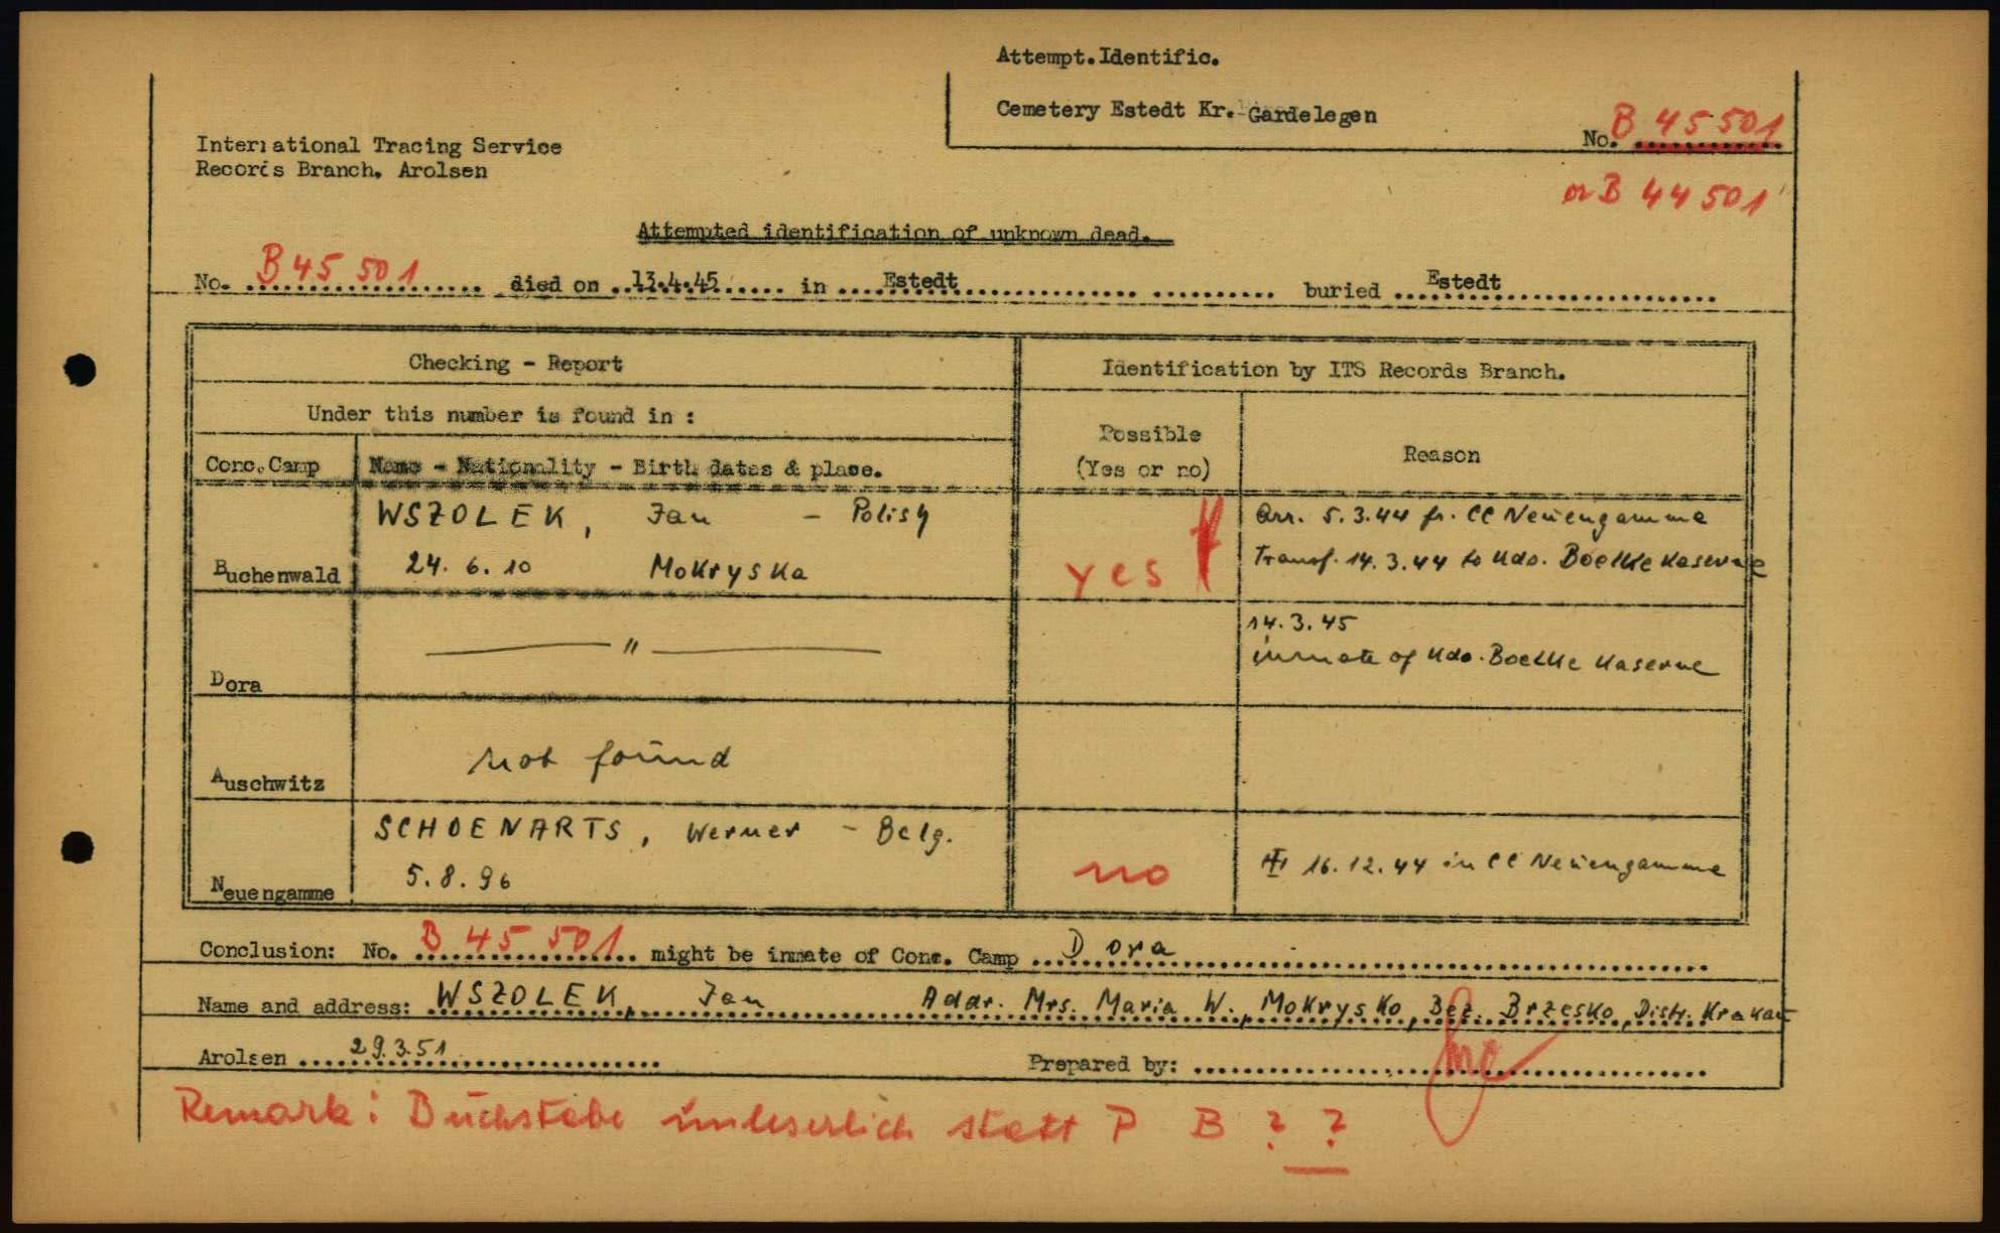 Attempt.Identific.
Cemetery Estedt Kr. Gardelegen
No. B 45 501
or B 44 501
International Tracing Service
Records Branch. Arolsen
Attempted identification of unknown dead.
No. B 45 501 died on 13.4.45 in Estedt buried Estedt
Checking - Report
Identification by ITS Records Branch.
Under this number is found in :
Possible
(Yes or no)
Reason
Conc.Camp
Name - Nationality - Birth dates & place.
Buchenwald
WSZOLEK, Jan - Polish
24. 6. 10 Mokryska
yes
Arr. 5.3.44 fr. CC Neuengamme
Transf. 14.3.44 to Kdo. Boelke Kaserne
Dora
"
14.3.45
inmate of Kdo. Boelke Kaserne
Auschwitz
not found
Neuengamme
SCHOENARTS, Werner - Belg.
5.8.96
no
16.12.44 in CC Neuengamme
Conclusion: No. B 45 501 might be inmate of Conc. Camp Dora
Name and address: WSZOLEK, Jan Addr. Mrs. Maria W., Mokrysko, Bez. Brzesko, Distr. Krakau
Arolsen 29.3.51 Prepared by:
Remark: Buchstabe unleserlich statt P B ? ?